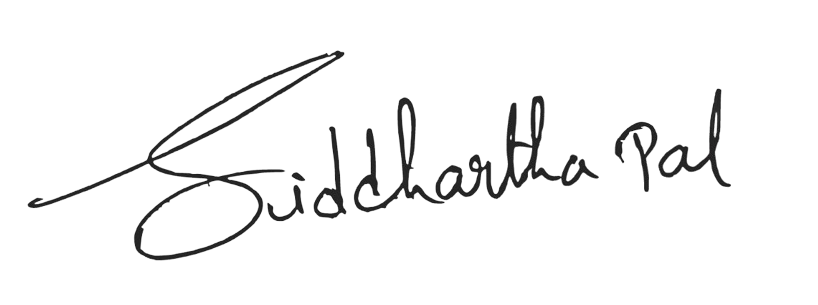 Siddhartha Pal